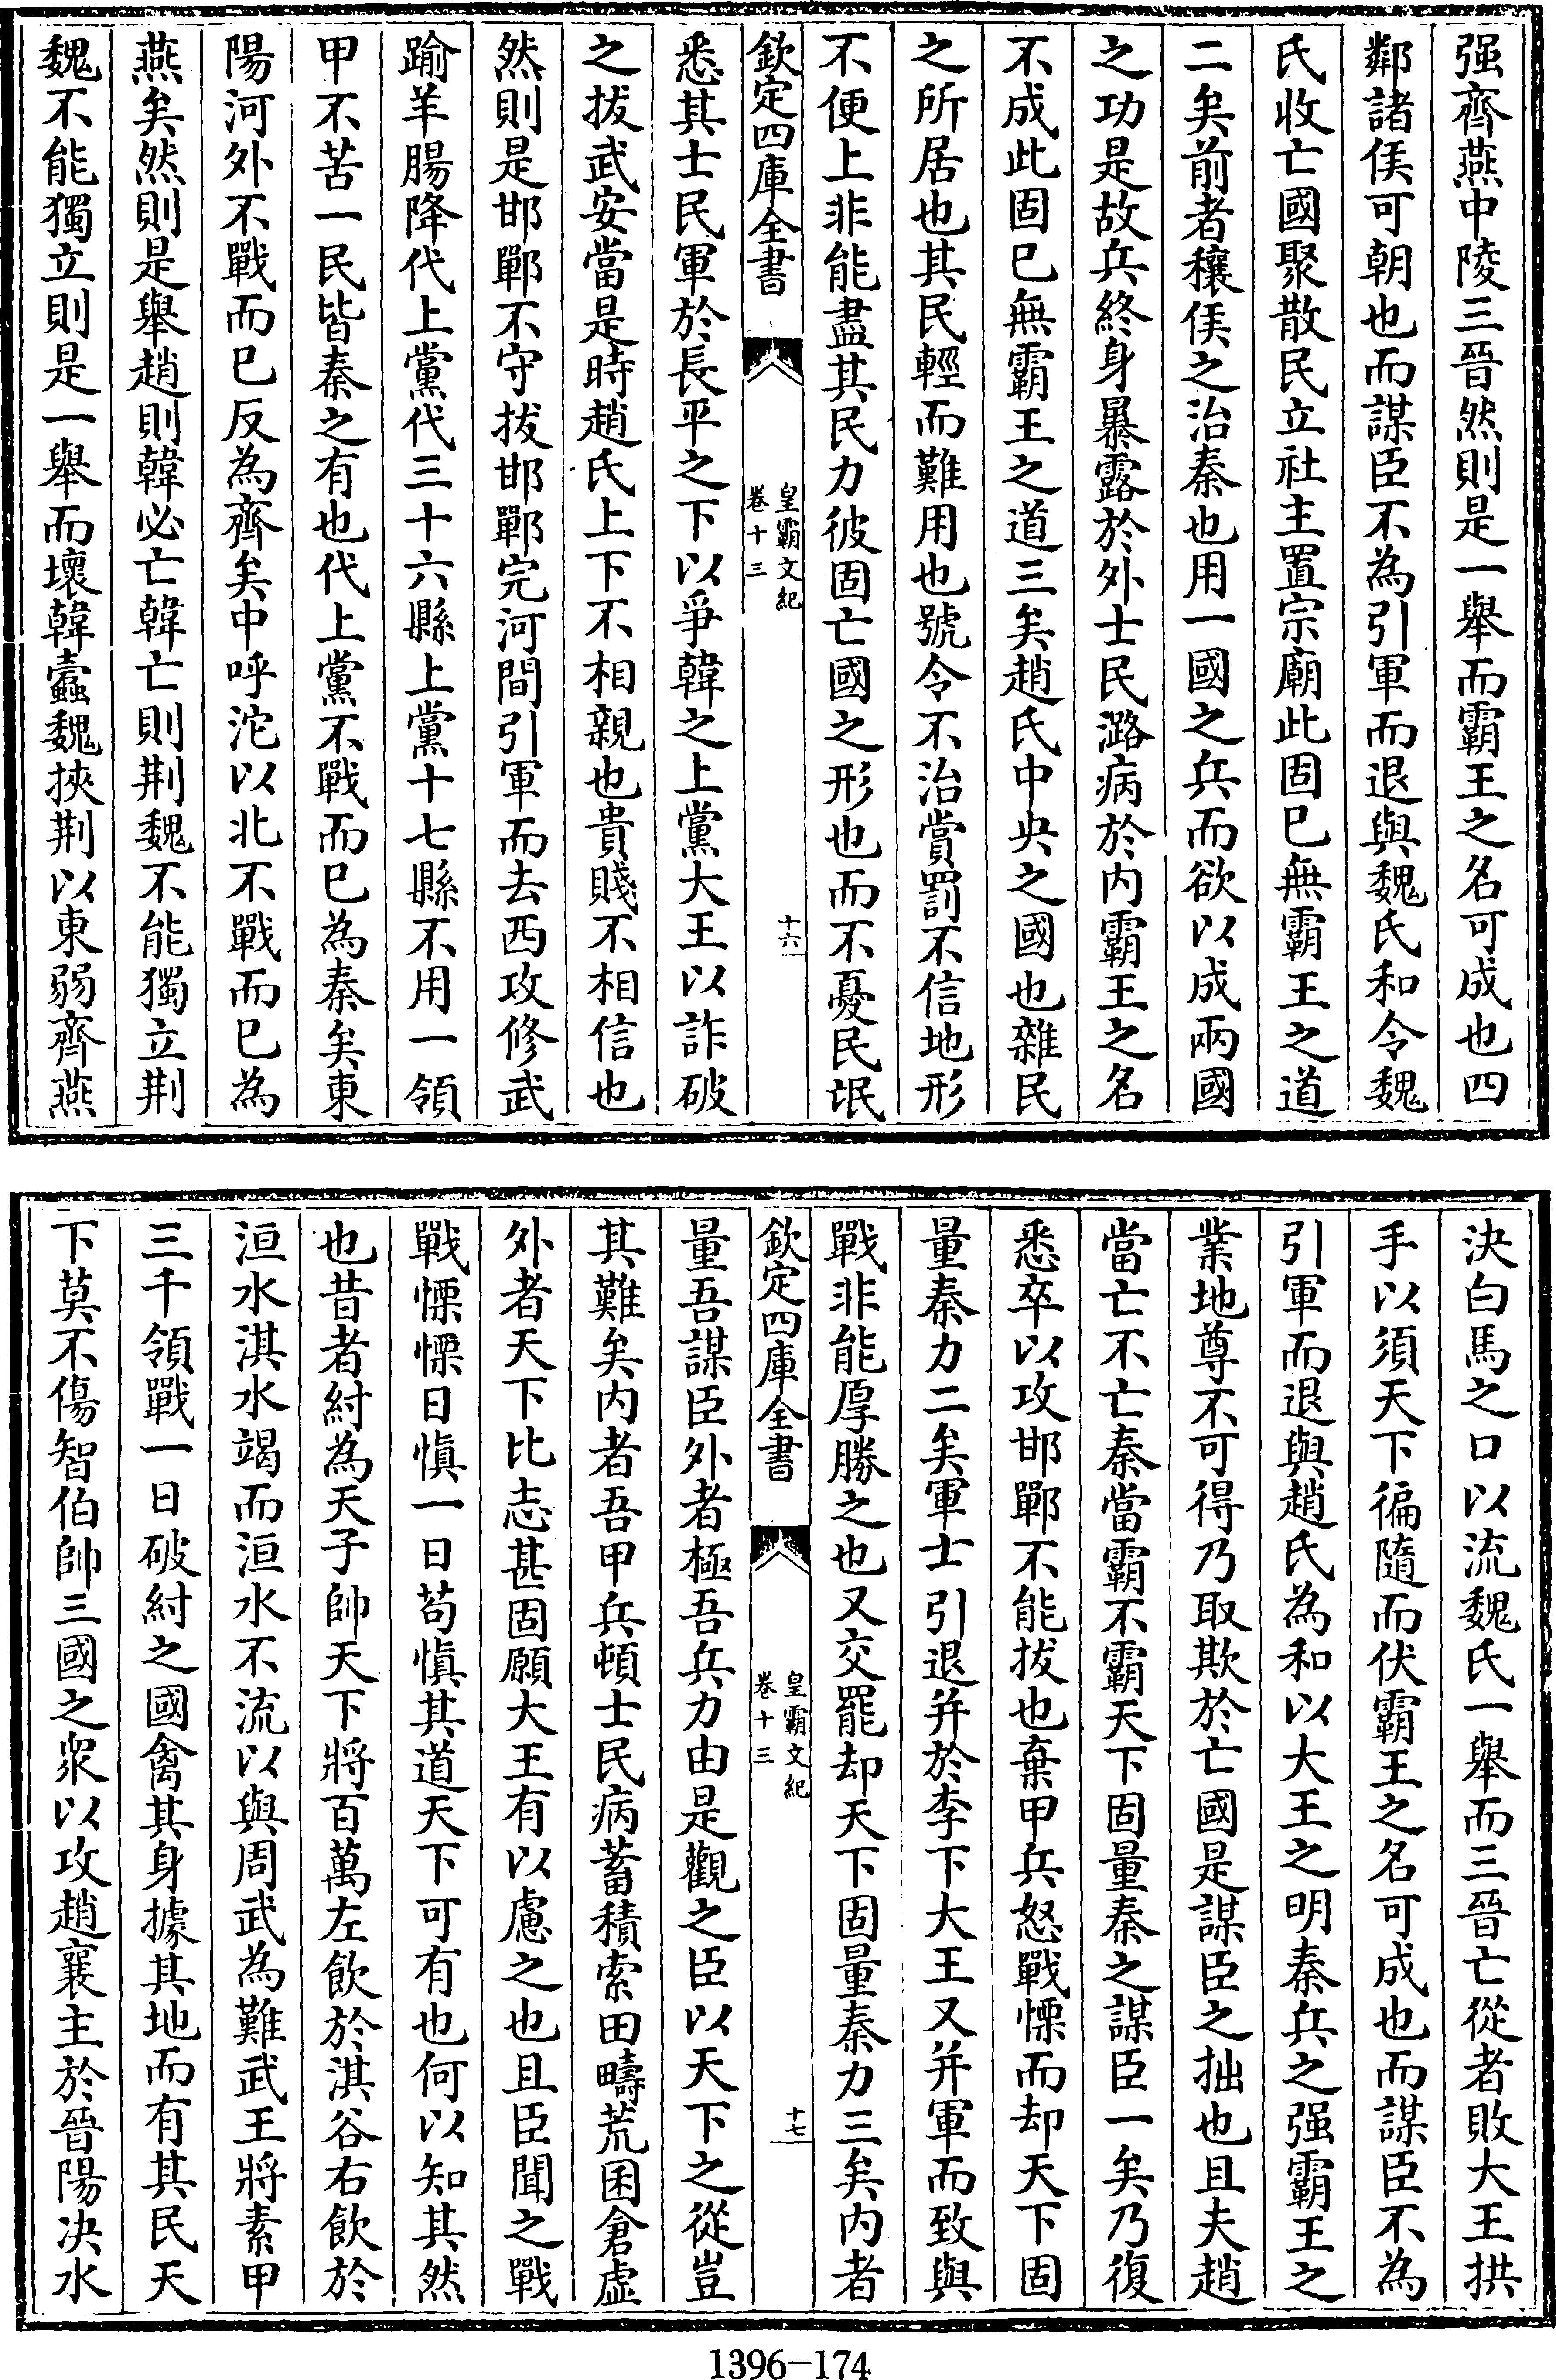 强齊燕中陵三晉然則是一舉而霸王之名可成也四
鄰諸侯可朝也而謀臣不為引軍而退與魏氏和令魏
氏收亡國聚散民立社主置宗廟此固已無霸王之道
二矣前者穰侯之治秦也用一國之兵而欲以成兩國
之功是故兵終身暴露於外士民潞病於内霸王之名
不成此固已無霸王之道三矣趙氏中央之國也雜民
之所居也其民輕而難用也號令不治賞罰不信地形
不便上非能盡其民力彼固亡國之形也而不憂民氓
欽定四庫全書
皇霸文紀
卷十三
十六
悉其士民軍於長平之下以爭韓之上黨大王以詐破
之拔武安當是時趙氏上下不相親也貴賤不相信也
然則是邯鄲不守拔邯鄲完河間引軍而去西攻修武
踰羊腸降代上黨代三十六縣上黨十七縣不用一領
甲不苦一民皆秦之有也代上黨不戰而已為秦矣東
陽河外不戰而已反為齊矣中呼沱以北不戰而已為
燕矣然則是舉趙則韓必亡韓亡則荆魏不能獨立荆
魏不能獨立則是一舉而壞韓蠹魏挾荆以東弱齊燕
決白馬之口以流魏氏一舉而三晉亡從者敗大王拱
手以須天下徧隨而伏霸王之名可成也而謀臣不為
引軍而退與趙氏為和以大王之明秦兵之强霸王之
業地尊不可得乃取欺於亡國是謀臣之拙也且夫趙
當亡不亡秦當霸不霸天下固量秦之謀臣一矣乃復
悉卒以攻邯鄲不能拔也棄甲兵怒戰慄而却天下固
量秦力二矣軍士引退并於李下大王又并軍而致與
戰非能厚勝之也又交罷却天下固量秦力三矣内者
欽定四庫全書
皇霸文紀
卷十三
十七
量吾謀臣外者極吾兵力由是觀之臣以天下之從豈
其難矣内者吾甲兵頓士民病蓄積索田疇荒囷倉虚
外者天下比志甚固願大王有以慮之也且臣聞之戰
戰慄慄日慎一日苟慎其道天下可有也何以知其然
也昔者紂為天子帥天下將百萬左飲於淇谷右飲於
洹水淇水竭而洹水不流以與周武為難武王將素甲
三千領戰一日破紂之國禽其身據其地而有其民天
下莫不傷智伯帥三國之衆以攻趙襄主於晉陽決水
1396-174